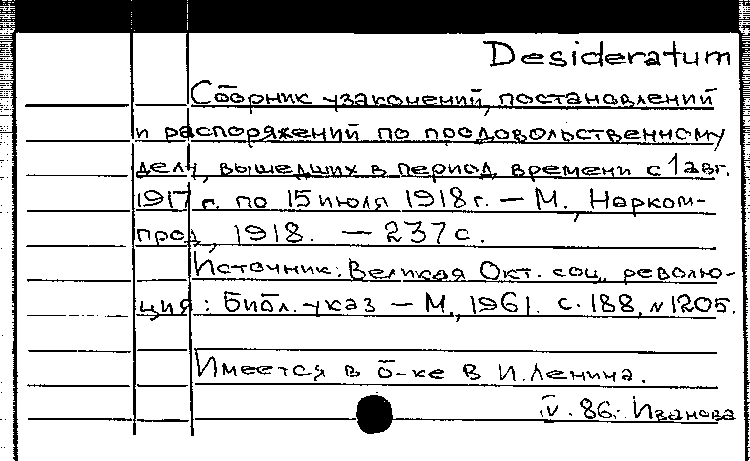 Desideratum
Сборник узаконений, постановлений
и распоряжений по продовольственному
делу, вышедших в период времени с 1 авг.
1917 г. по 15 июля 1918 г. — М., Нарком-
прод, 1918. — 237 с.
Источник: Великая Окт. соц. револю-
ция: библ. указ — М., 1961. с. 188, № 1205.
Имеется в б-ке В. И. Ленина.
IV. 86. Иванова